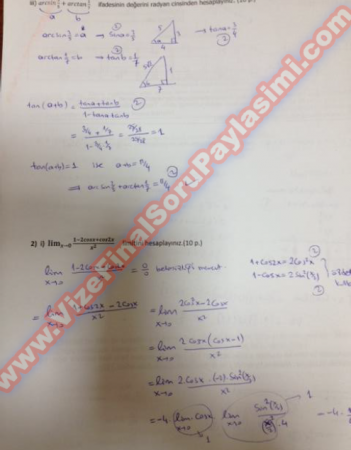 iii) arcsin 3/5 + arctan 1/7 ifadesinin değerini radyan cinsinden hesaplayınız. (10 p.)
a b
arcsin 3/5 = a → sina = 3/5 → tana = 3/4
arctan 1/7 = b → tanb = 1/7
tan(a+b) = (tana + tanb) / (1 - tana.tanb)
= (3/4 + 1/7) / (1 - 3/4 . 1/7) = = 1
tan(a+b) = 1 ise a+b = π/4
⇒ arcsin 3/5 + arctan 1/7 = π/4
2) i) lim x→0 (1-2cosx+cos2x)/x² limitini hesaplayınız. (10 p.)
lim x→0 = 0/0 belirsizliği mevcut.
1+cos2x = 2cos²x
1-cosx = 2sin²(x/2)
= lim x→0 (1+cos2x - 2cosx)/x² = lim x→0 (2cos²x - 2cosx)/x²
= lim x→0 2cosx(cosx-1)/x²
= lim x→0 2.cosx.(-2).sin²(x/2)/x²
= -4 lim x→0 cosx lim x→0 sin²(x/2)
www.VizeFinalSoruPaylasimi.com